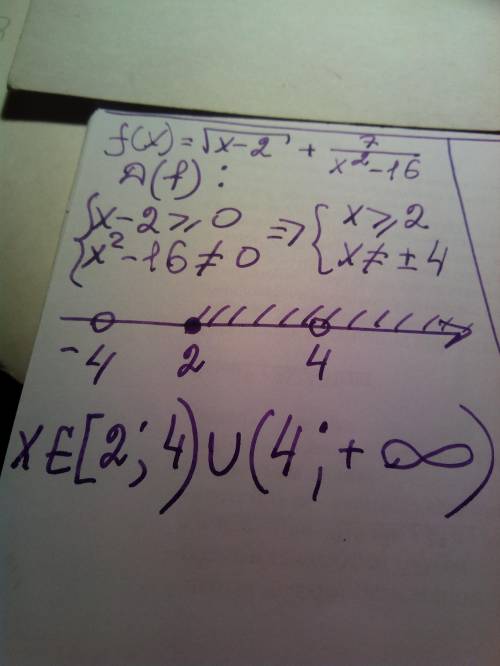 f(x)=√x-2 + 7/x²-16
D(f):
{x-2⩾0 ⇒ {x⩾2
{x²-16≠0 {x≠±4
-4 2 4 x
x∈[2;4)∪(4;+∞)